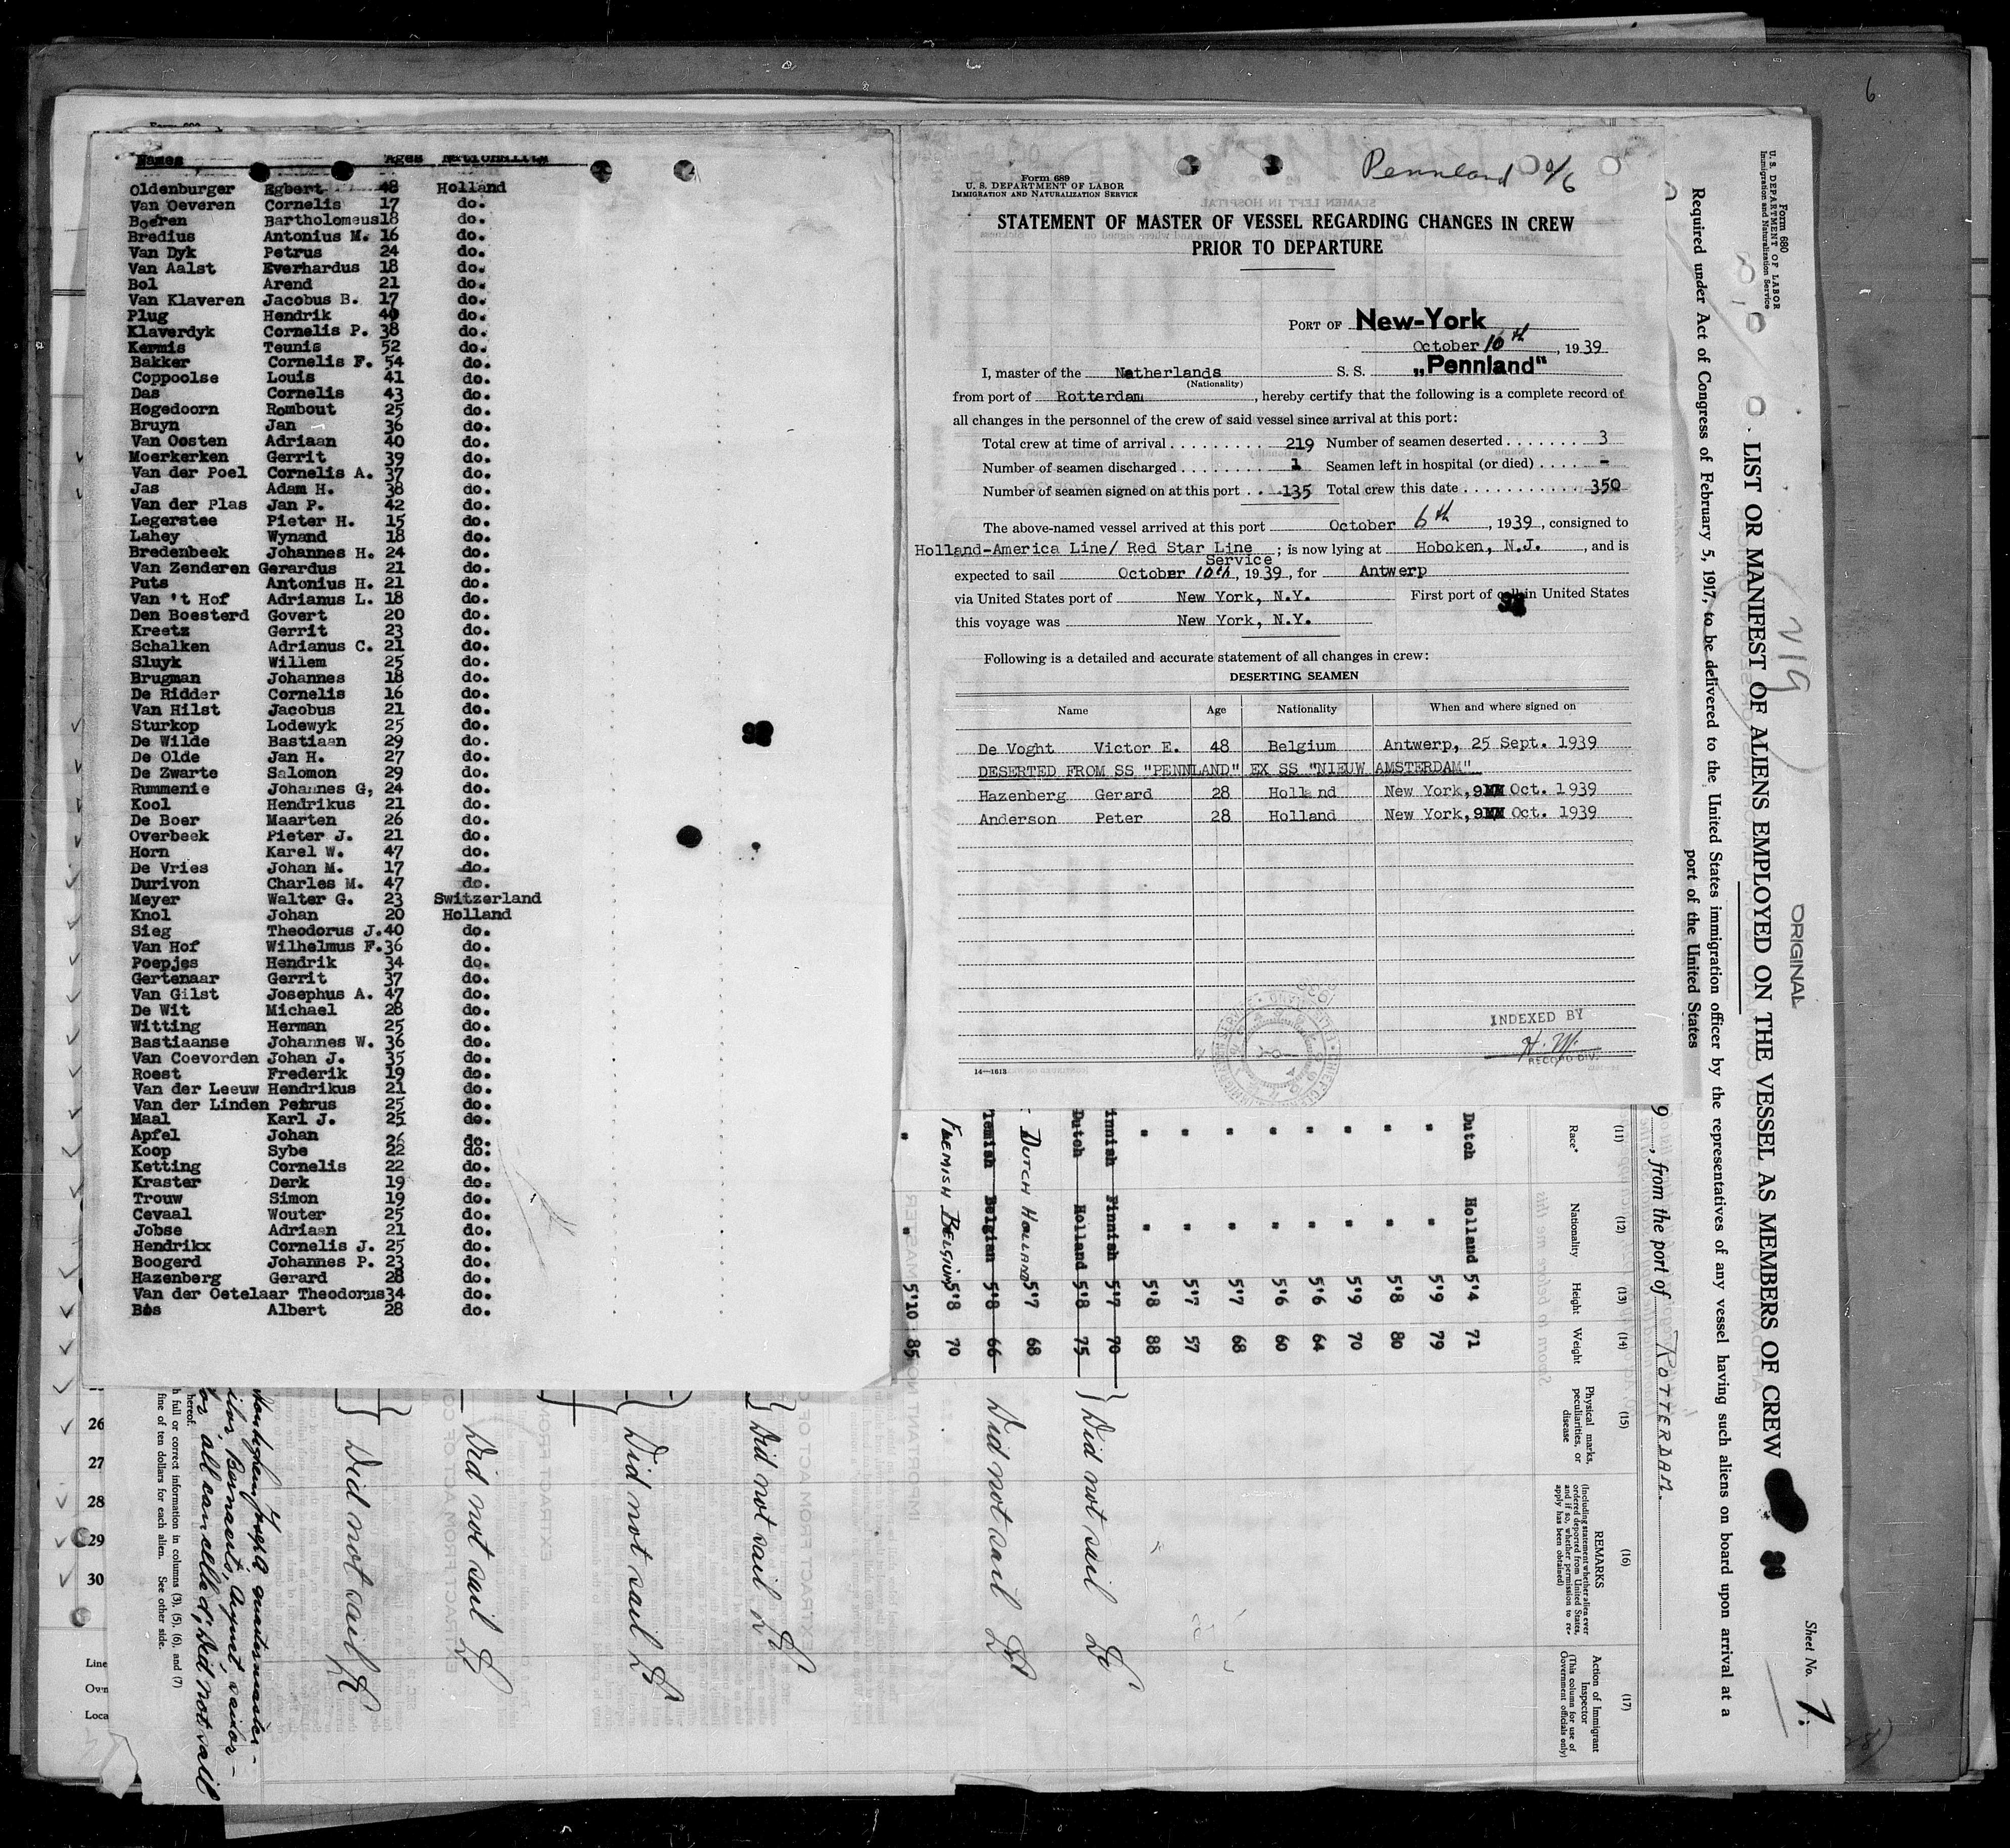 Names Ages Nationality
Oldenburger Egbert 48 Holland
Van Oeveren Cornelis 17 do.
Boeren Bartholomeus 18 do.
Bredius Antonius M. 16 do.
Van Dyk Petrus 24 do.
Van Aalst Everhardus 18 do.
Bol Arend 21 do.
Van Klaveren Jacobus B. 17 do.
Plug Hendrik 40 do.
Klaverdyk Cornelis P. 38 do.
Kermis Teunis 52 do.
Bakker Cornelis F. 54 do.
Coppoolse Louis 41 do.
Das Cornelis 43 do.
Hogedoorn Rombout 25 do.
Bruyn Jan 36 do.
Van Oosten Adriaan 40 do.
Moerkerken Gerrit 39 do.
Van der Poel Cornelis A. 37 do.
Jas Adam H. 38 do.
Van der Plas Jan P. 42 do.
Legerstee Pieter H. 15 do.
Lahey Wynand 18 do.
Bredenbeek Johannes H. 24 do.
Van Zenderen Gerardus 21 do.
Puts Antonius H. 21 do.
Van 't Hof Adrianus L. 18 do.
Den Boesterd Govert 20 do.
Kreetz Gerrit 23 do.
Schalken Adrianus C. 21 do.
Sluyk Willem 25 do.
Brugman Johannes 18 do.
De Ridder Cornelis 16 do.
Van Hilst Jacobus 21 do.
Sturkop Lodewyk 25 do.
De Wilde Bastiaan 29 do.
De Olde Jan H. 27 do.
De Zwarte Salomon 29 do.
Rummenie Johannes G, 24 do.
Kool Hendrikus 21 do.
De Boer Maarten 26 do.
Overbeek Pieter J. 21 do.
Horn Karel W. 47 do.
De Vries Johan M. 17 do.
Durivon Charles M. 47 do.
Meyer Walter G. 23 Switzerland
Knol Johan 20 Holland
Sieg Theodorus J. 40 do.
Van Hof Wilhelmus F. 36 do.
Poepjes Hendrik 34 do.
Gertenaar Gerrit 37 do.
Van Gilst Josephus A. 47 do.
De Wit Michael 28 do.
Witting Herman 25 do.
Bastiaanse Johannes W. 36 do.
Van Coevorden Johan J. 35 do.
Roest Frederik 19 do.
Van der Leeuw Hendrikus 21 do.
Van der Linden Petrus 25 do.
Maal Karl J. 25 do.
Apfel Johan 26 do.
Koop Sybe 22 do.
Ketting Cornelis 22 do.
Kraster Derk 19 do.
Trouw Simon 19 do.
Cevaal Wouter 25 do.
Jobse Adriaan 21 do.
Hendrikx Cornelis J. 25 do.
Boogerd Johannes P. 23 do.
Hazenberg Gerard 28 do.
Van der Oetelaar Theodorus 34 do.
Bos Albert 28 do.
Pennland 10/6
Form 689
U. S. DEPARTMENT OF LABOR
IMMIGRATION AND NATURALIZATION SERVICE
STATEMENT OF MASTER OF VESSEL REGARDING CHANGES IN CREW
PRIOR TO DEPARTURE
PORT OF New-York
October 10th, 1939
I, master of the Netherlands S. S. „Pennland"
(Nationality)
from port of Rotterdam, hereby certify that the following is a complete record of
all changes in the personnel of the crew of said vessel since arrival at this port:
Total crew at time of arrival 219 Number of seamen deserted 3
Number of seamen discharged 1 Seamen left in hospital (or died) -
Number of seamen signed on at this port 135 Total crew this date 350
The above-named vessel arrived at this port October 6th, 1939, consigned to
Holland-America Line/ Red Star Line Service; is now lying at Hoboken, N.J., and is
expected to sail October 10th, 1939, for Antwerp
via United States port of New York, N.Y. First port of call in United States
this voyage was New York, N.Y.
Following is a detailed and accurate statement of all changes in crew:
DESERTING SEAMEN
Name Age Nationality When and where signed on
De Voght Victor E. 48 Belgium Antwerp, 25 Sept. 1939
DESERTED FROM SS "PENNLAND" EX SS "NIEUW AMSTERDAM"
Hazenberg Gerard 28 Holland New York, 9 Oct. 1939
Anderson Peter 28 Holland New York, 9 Oct. 1939
INDEXED BY
H. W.
RECORD DIV.
14—1613
Form 680
U. S. DEPARTMENT OF LABOR
Immigration and Naturalization Service
ORIGINAL
Sheet No. 1.
LIST OR MANIFEST OF ALIENS EMPLOYED ON THE VESSEL AS MEMBERS OF CREW
Required under Act of Congress of February 5, 1917, to be delivered to the United States immigration officer by the representatives of any vessel having such aliens on board upon arrival at a
port of the United States
219
9, from the port of ROTTERDAM.
(11) (12) (13) (14) (15) (16) (17)
Race* Nationality Height Weight
Physical marks, peculiarities, or disease
REMARKS
(Including statement whether alien ever ordered deported from United States, and if so, whether permission to re-apply has been obtained)
Action of Immigrant Inspector
(This column for use of Government officials only)
Dutch Holland 5'4 71
" " 5'9 79
" " 5'8 80
" " 5'9 70
" " 5'6 64
" " 5'6 60
" " 5'7 68
" " 5'7 57
" " 5'8 88
innish Finnish 5'7 70
Dutch Holland 5'8 75
Did not sail
DUTCH HOLLAND 5'7 68
lemish Belgian 5'8 66
Did not sail
FLEMISH BELGIUM 5'8 70
" " 5'10 85
Did not sail
Did not sail
Did not sail
Did not sail
26
27
28
29
30
Line
Own
Loca
hereof.
h full or correct information in columns (3), (5), (6), and (7)
fine of ten dollars for each alien. See other side.
6